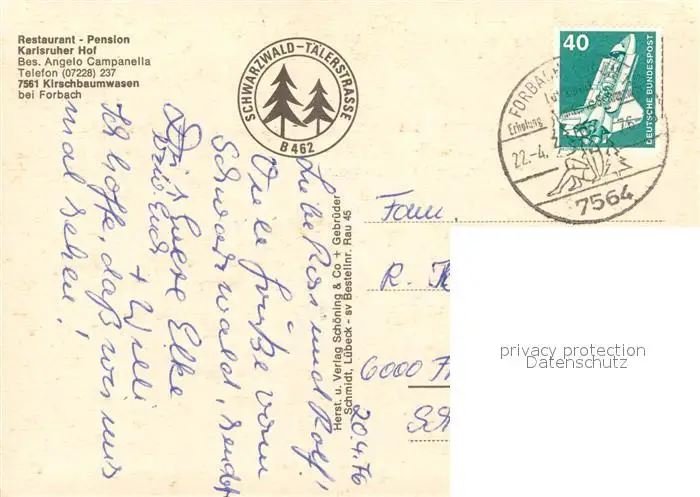 Restaurant - Pension
Karlsruher Hof
Bes. Angelo Campanella
Telefon (07228) 237
7561 Kirschbaumwasen
bei Forbach
SCHWARZWALD-TÄLERSTRASSE
B 462
40
DEUTSCHE BUNDESPOST
FORBACH
Erholung
22.-4.
7564
20.4.76
Liebe Rosi und Rolf!
Viele Grüße vom
Schwarzwald, sendet
Euch
Eure Elke
+ Willi
Ich hoffe, daß wir uns
mal sehen!
Herst. u. Verlag Schöning & Co + Gebrüder
Schmidt, Lübeck - sv Bestellnr. Rau 45
Fam
R.
6000
privacy protection
Datenschutz